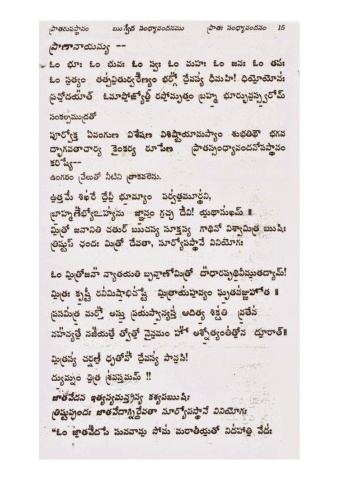 ప్రాతరుపస్థానం ఋగ్వేద సంధ్యావందనము ప్రాతః సంధ్యావందనం 15
ప్రాణానాయమ్య --
ఓం భూః ఓం భువః ఓం స్వః ఓం మహః ఓం జనః ఓం తపః
ఓం సత్యం తత్సవితుర్వరేణ్యం భర్గో దేవస్య ధీమహి! ధియోయోనః
ప్రచోదయాత్ ఓమాపోజ్యోతీ రసోమృతం బ్రహ్మ భూర్భువస్సువరోమ్
సంకల్పముద్రతో
పూర్వోక్త ఏవంగుణ విశేషణ విశిష్టాయామస్యాం శుభతిథౌ భగవ
ద్భాగవతాచార్య కైంకర్య రూపేణ ప్రాతస్సంధ్యావందనోపస్థానం
కరిష్యే--
ఉంగరం వేలుతో నీటిని త్రాకవలెను.
ఉత్తమే శిఖరే దేవీ భూమ్యాం పర్వతమూర్ధని,
బ్రాహ్మణేభ్యోఽహ్యను జ్ఞానం గచ్ఛ దేవి! యథాసుఖమ్ ||
మిత్రో జనానితి చతుర్ ఋచస్య సూక్తస్య గాథినో విశ్వామిత్ర ఋషిః
త్రిష్టుప్ ఛందః మిత్రో దేవతా, సూర్యోపస్థానే వినియోగః
ఓం మిత్రోజనా న్యాతయతి బ్రువాణోమిత్రో దాధారపృథివీముతద్యామ్!
మిత్రః కృష్టీ రనిమిషాభిచష్టే మిత్రాయహవ్యం ఘృతవజ్జుహోత ||
ప్రసమిత్ర మర్తో అస్తు ప్రయస్వాన్యస్తే ఆదిత్య శిక్షతి వ్రతేన
నహన్యతే నజీయతే త్వోతో నైనమం హో అశ్నోత్యంతితోన దూరాత్||
మిత్రస్య చర్షణీ ధృతోవో దేవస్య సానసి!
ద్యుమ్నం చిత్ర శ్రవస్తమమ్ !!
జాతవేదస ఇత్యస్యమంత్రస్య కశ్యపఋషిః
త్రిష్టుప్ఛందః జాతవేదాగ్నిర్దేవతా సూర్యోపస్థానే వినియోగః
"ఓం జాతవేదసే సునవామ సోమ మరాతీయతో నిదహాతి వేదః